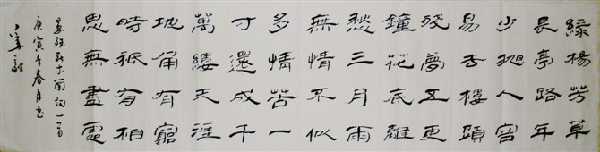 綠楊芳草
長亭路年
少拋人容
易去樓頭
殘夢五更
鐘花底離
愁三月雨
無情不似
多情苦一
寸還成千
萬縷天涯
地角有窮
時祇有相
思無盡處
晏殊詞木蘭花一首
庚寅年春月書